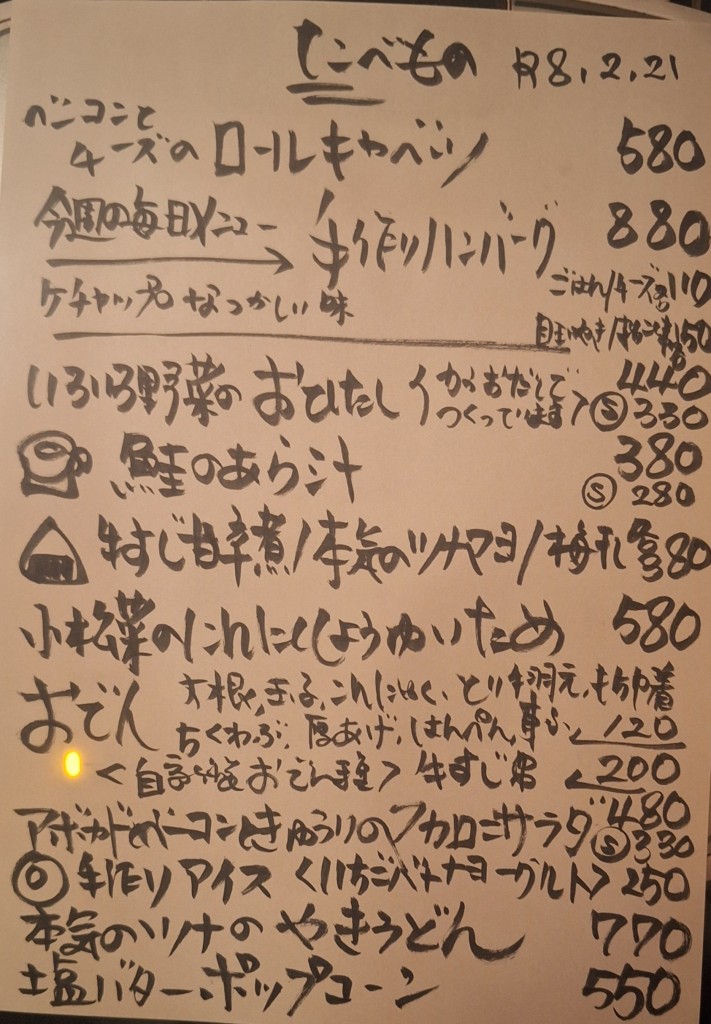 たべもの R8.2.21
ベーコンと
チーズの ロールキャベツ 580
今週の毎日メニュー → 手作りハンバーグ 880
ケチャップ なつかしい味 ごはん/チーズ各110
150
いろいろ野菜の おひたし 440
〈からおだしで
つくっています〉 Ⓢ330
鮭のあら汁 380
Ⓢ 280
牛すじ甘辛煮/本気のツナマヨ/梅干 各380
小松菜のにんにくしょうゆいため 580
おでん 大根、玉子、こんにゃく、とり手羽元、もち巾着
ちくわぶ、厚あげ、はんぺん、車ふ 120
〈自家製おでん種〉 牛すじ串 200
アボカドとベーコンときゅうりのマカロニサラダ 480
Ⓢ330
手作りアイス 〈いちごバナナヨーグルト〉 250
本気のツナの やきうどん 770
塩バターポップコーン 550